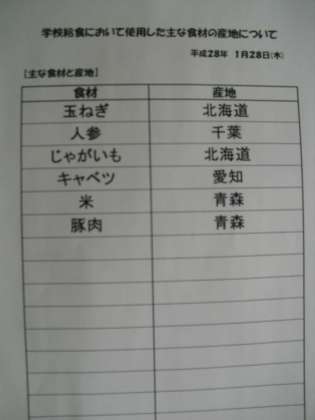 学校給食において使用した主な食材の産地について
平成28年 1月28日(木)
[主な食材と産地]
食材 産地
玉ねぎ 北海道
人参 千葉
じゃがいも 北海道
キャベツ 愛知
米 青森
豚肉 青森